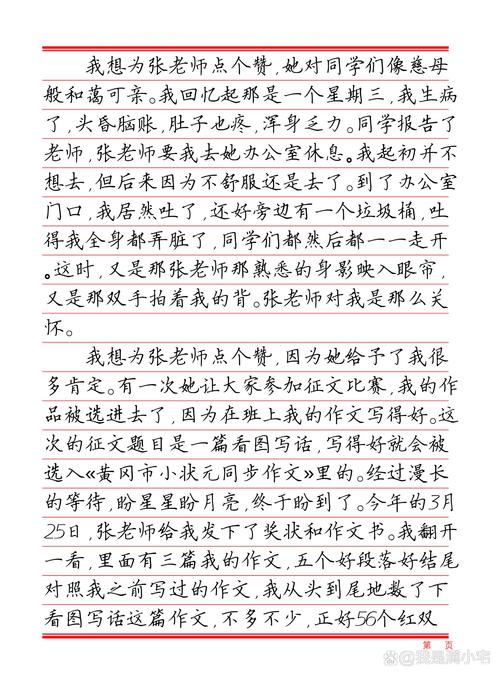 我想为张老师点个赞，她对同学们像慈母
般和蔼可亲。我回忆起那是一个星期三，我生病
了，头昏脑账，肚子也疼，浑身乏力。同学报告了
老师，张老师要我去她办公室休息。我起初并不
想去，但后来因为不舒服还是去了。到了办公室
门口，我居然吐了，还好旁边有一个垃圾桶，吐
得我全身都弄脏了，同学们都然后都一一走开
。这时，又是那张老师那熟悉的身影映入眼帘，
又是那双手拍着我的背。张老师对我是那么关
怀。
我想为张老师点个赞，因为她给予了我很
多肯定。有一次她让大家参加征文比赛，我的作
品被选进去了，因为在班上我的作文写得好。这
次的征文题目是一篇看图写话，写得好就会被
选入《黄冈市小状元同步作文》里的。经过漫长
的等待，盼星星盼月亮，终于盼到了。今年的3月
25日，张老师给我发下了奖状和作文书。我翻开
一看，里面有三篇我的作文，五个好段落好结尾
对照我之前写过的作文，我从头到尾地数了下
看图写话这篇作文，不多不少，正好56个红双
第 页
@我是蔺小宅